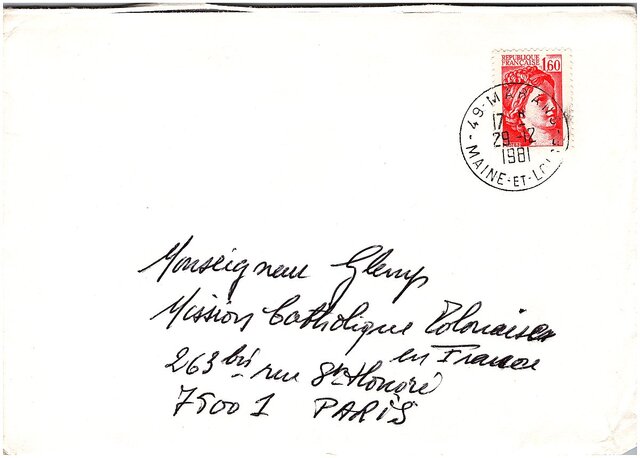 REPUBLIQUE
FRANÇAISE 1,60
49-MARANS
17 H
29-12
1981
MAINE-ET-LOIRE
Monseigneur Glemp
Mission Catholique Polonaise
en France
263 bis rue St Honoré
75001 PARIS